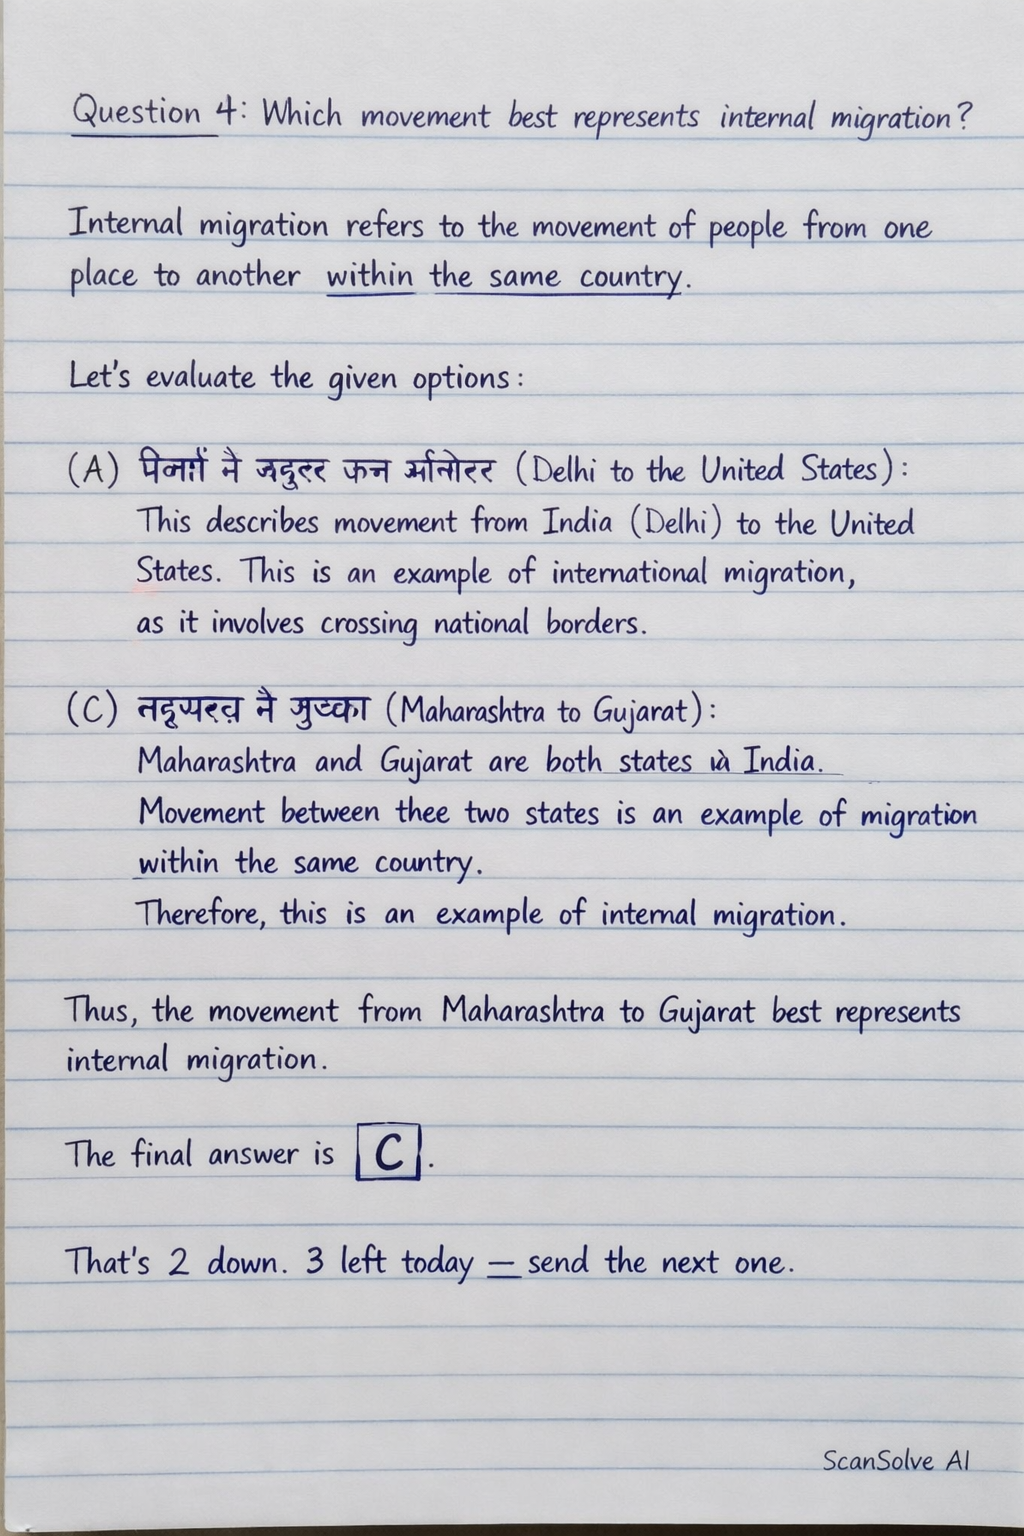 Question 4: Which movement best represents internal migration?
Internal migration refers to the movement of people from one
place to another within the same country.
Let's evaluate the given options:
(A) ने (Delhi to the United States):
This describes movement from India (Delhi) to the United
States. This is an example of international migration,
as it involves crossing national borders.
(C) ने (Maharashtra to Gujarat):
Maharashtra and Gujarat are both states India.
Movement between thee two states is an example of migration
within the same country.
Therefore, this is an example of internal migration.
Thus, the movement from Maharashtra to Gujarat best represents
internal migration.
The final answer is C.
That's 2 down. 3 left today — send the next one.
ScanSolve AI